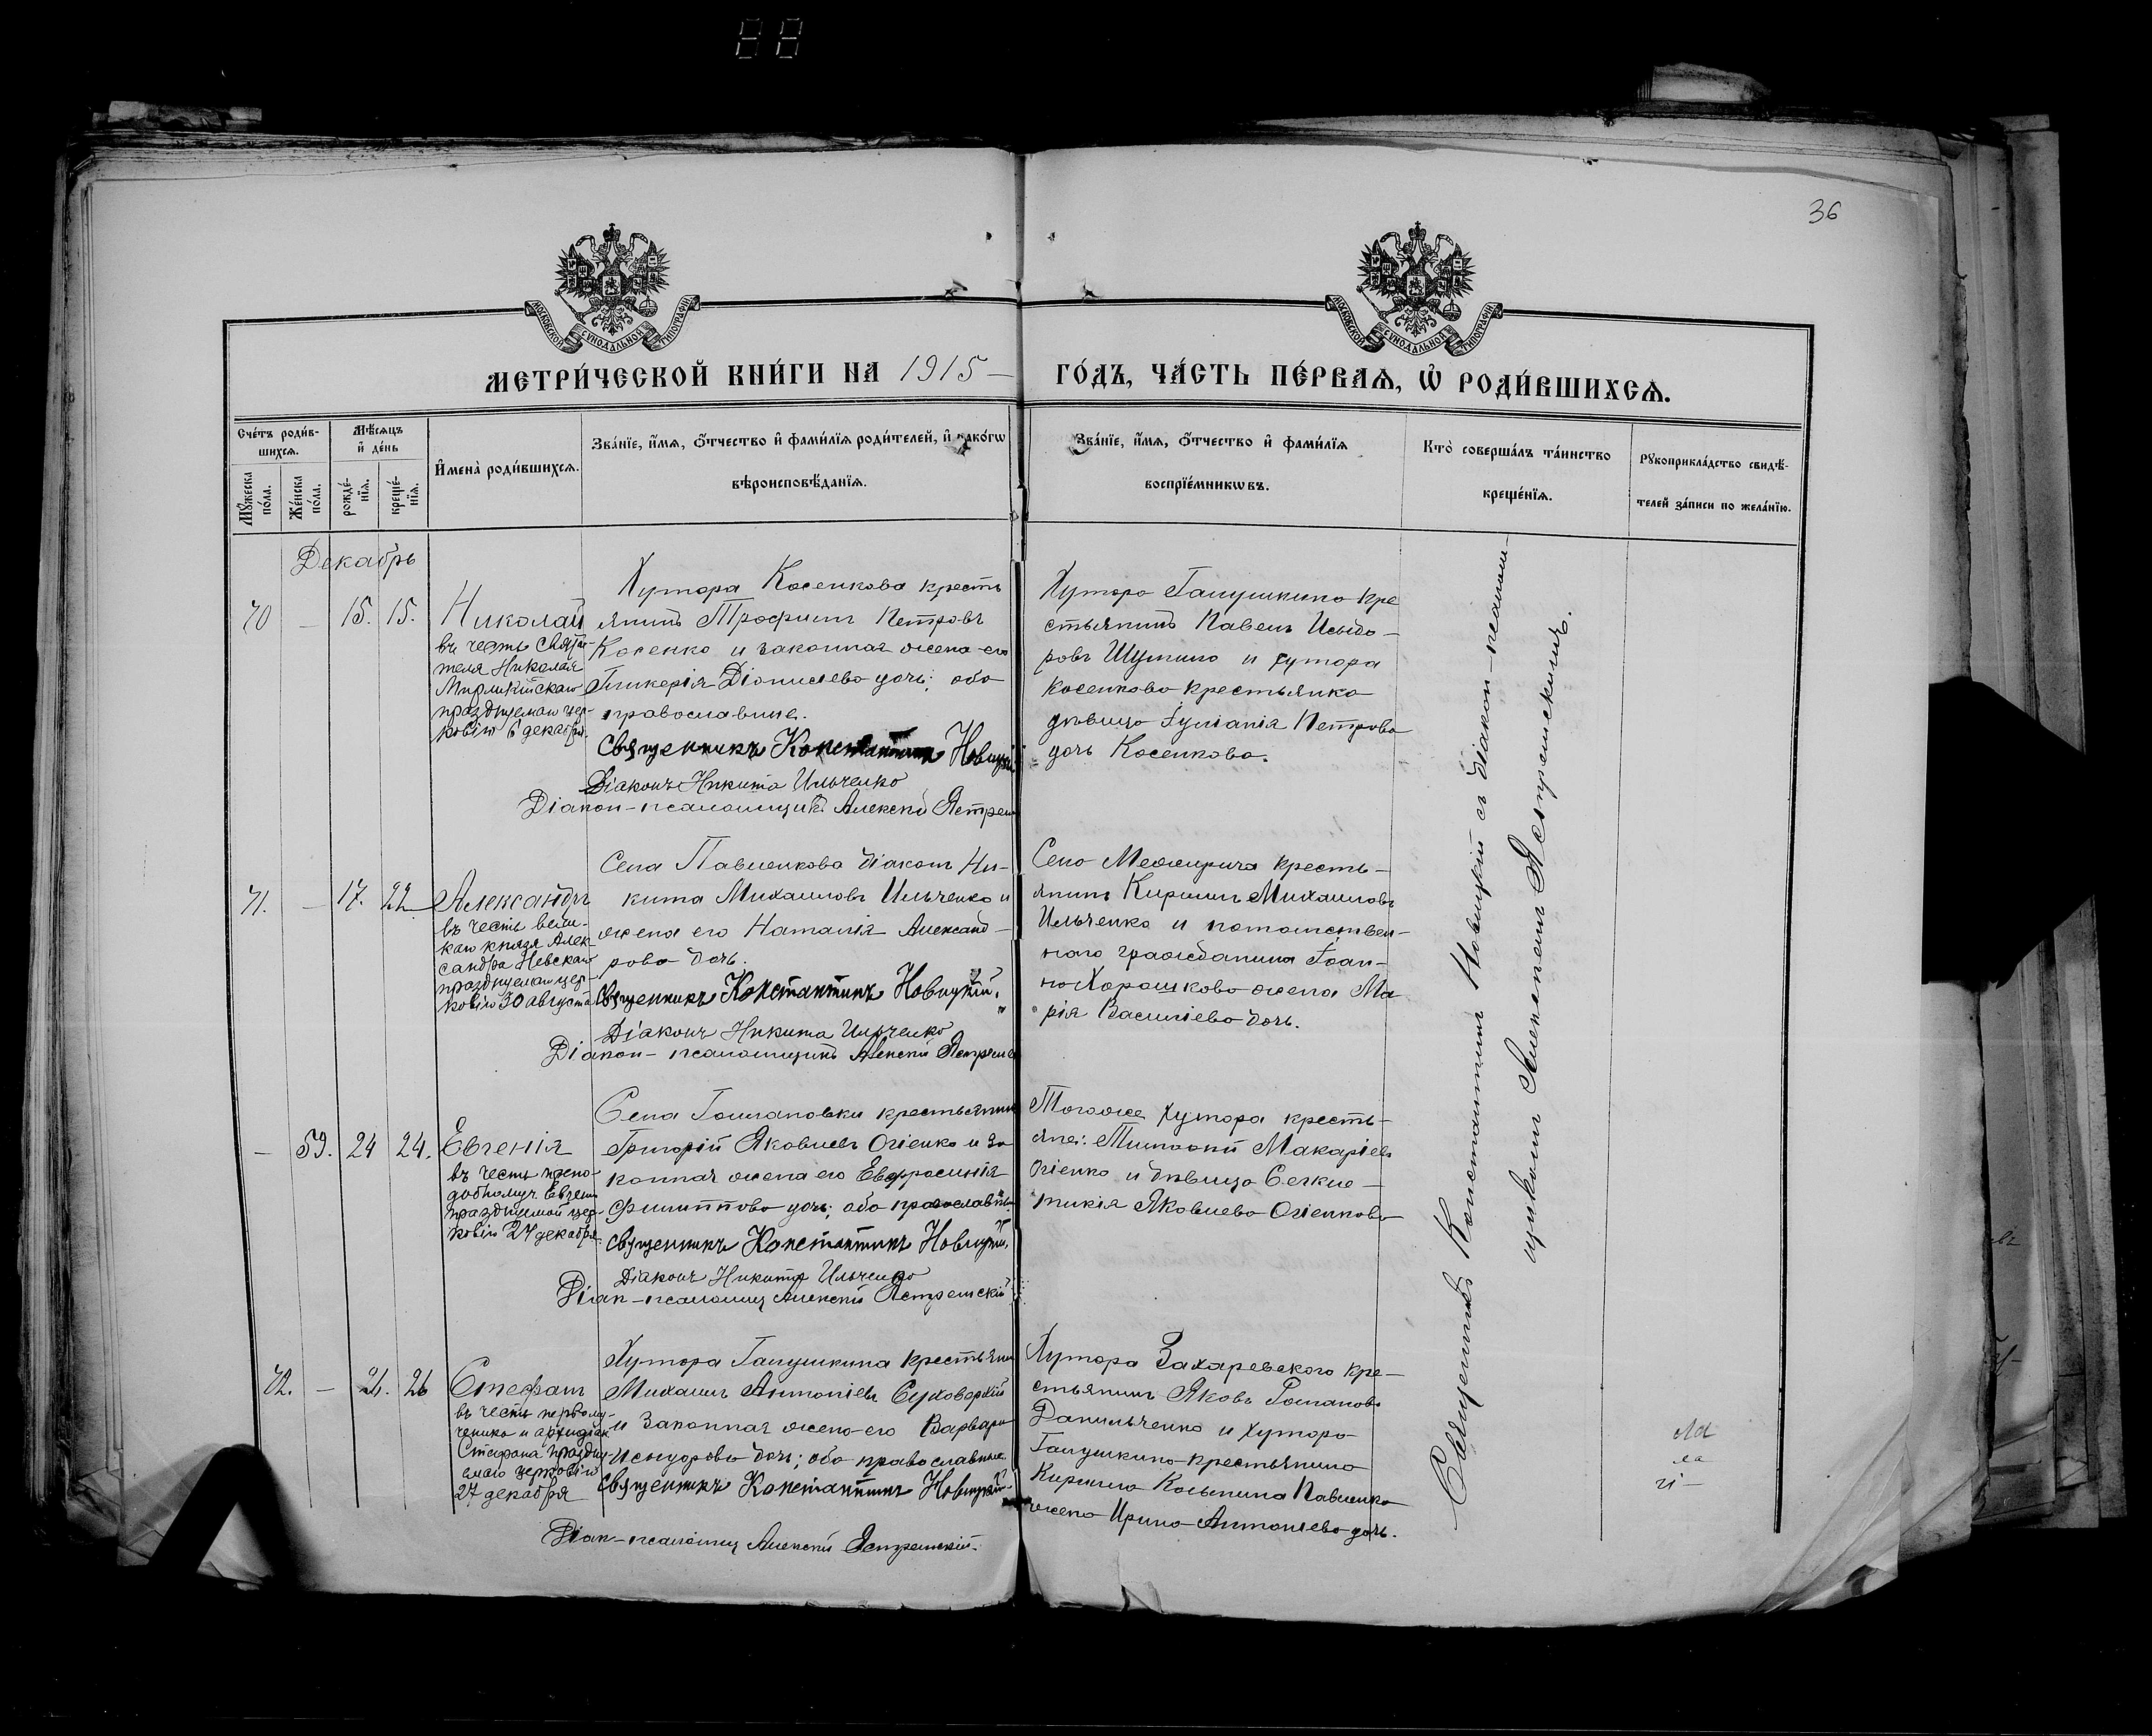 36
МОСКОВСКОЙ СУНОДАЛЬНОЙ ТИПОГРАФІИ
МОСКОВСКОЙ СУНОДАЛЬНОЙ ТИПОГРАФІИ
МЕТРИ́ЧЕСКОЙ КНИ́ГИ НА 1915 ГО́ДЪ, ЧА́СТЬ ПЕ́РВАѦ, Ѽ РОДИ́ВШИХСѦ.
Сче́тъ роди́в-
шихсѧ.
Мꙋ́жеска по́ла.
Же́нска по́ла.
Мѣ́сѧцъ и҆ де́нь
рожде́-
нїѧ.
креще́-
нїѧ.
И҆мена̀ роди́вшихсѧ.
Зва́нїе, и҆́мѧ, ѻ҆́тчество и҆ фами́лїѧ роди́телей, и҆ како́гѡ
вѣроисповѣ́данїѧ.
Зва́нїе, и҆́мѧ, ѻ҆́тчество и҆ фами́лїѧ
воспрїе́мникѡвъ.
Кто̀ соверша́лъ та́инство
креще́нїѧ.
Рꙋкоприкла́дство свидѣ́-
телей за́писи по жела́нїю.
Декабрь
70 — 15. 15.
Николай
въ честь Святи-
теля Николая
Мирликійскаго
празднуемаго цер-
ковію 6 декабря.
Хутора Косенкова кресть
янинъ Трофимъ Петровъ
Косенко и законная жена его
Гликерія Діонисіева дочь; оба
православные.
Священникъ Константинъ Новицкій.
Діаконъ Никита Ильченко
Діакон-псаломщикъ Алексѣй Ястрем
Хутора Галушкина кре
стьянинъ Павелъ Исидо-
ровъ и хутора
Косенкова крестьянка
дѣвица Іуліанія Петрова
дочь Косенкова.
71. — 17. 22
Александръ
въ честь вели-
каго князя Алек-
сандра Невскаго
празднуемаго цер-
ковію 30 августа
Села Павленкова діаконъ Ни-
кита Михаиловъ Ильченко и
жена его Наталія Александ-
рова дочь.
Священникъ Константинъ Новицкій.
Діаконъ Никита Ильченко
Діакон-псаломщикъ Алексѣй Ястрем
Села Межирича кресть-
янинъ Кириллъ Михаиловъ
Ильченко и потомствен-
наго гражданина Іоан-
на Хорошкова жена Ма
рія Василіева дочь.
— 59. 24 24.
Евгенія
въ честь препо-
добномуч. Евгеніи
празднуемой цер-
ковію 24 декабря
Села Гоилановки крестьянинъ
Григорій Яковлевъ Огіенко и за
конная жена его Евфросинія
Филиппова дочь; оба православные
Священникъ Константинъ Новицкій.
Діаконъ Никита Ильченко
Діак-псаломщ Алексѣй Ястремскій
Тогоже хутора кресть-
яне: Тимофей Макаріевъ
Огіенко и дѣвица Секле-
тикія Яковлева Огіенкова
72. — 21. 26
Стефанъ
въ честь первому-
ченика и архидіак
Стефана праздну-
емаго церковію
27 декабря
Хутора Галушкина крестьянинъ
Михаилъ Антоніевъ Суховерхій
и законная жена его Варвара
Исидорова дочь; оба православные
Священникъ Константинъ Новицкій
Діак-псаломщ Алексѣй Ястремскій.
Хутора Захаревского кре-
стьянинъ Яковъ Романовъ
Данильченко и хутора
Галушкина крестьянина
Кирилла Козьмина Павленка
жена Ирина Антоніева дочь.
Священникъ Константинъ Новицкій съ діакон-псалом-
щикомъ Алексѣемъ Ястремскимъ.